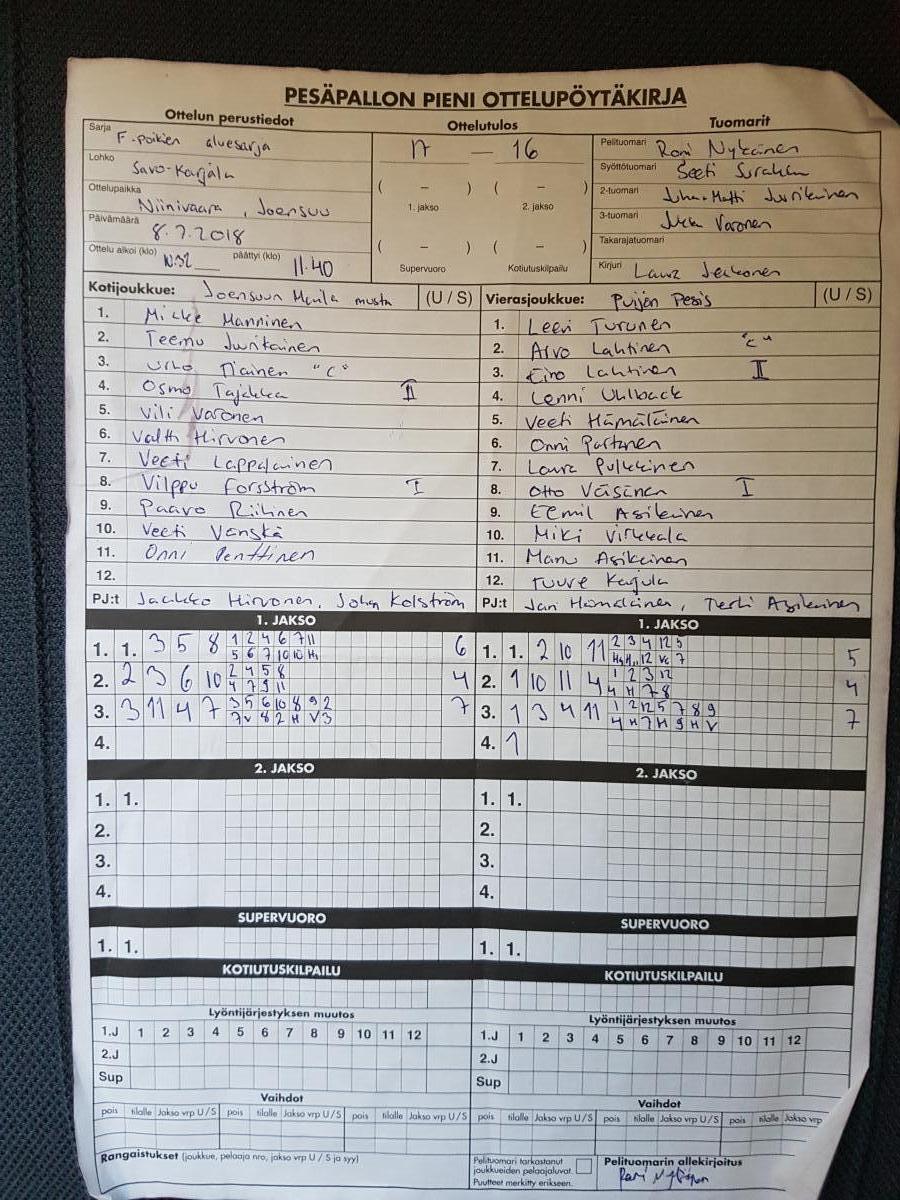 PESÄPALLON PIENI OTTELUPÖYTÄKIRJA
Ottelun perustiedot Ottelutulos Tuomarit
Sarja F-poikien aluesarja
Lohko Savo-Karjala
Ottelupaikka Niinivaara, Joensuu
Päivämäärä 8.7.2018
Ottelu alkoi (klo) 10.32 päättyi (klo) 11.40
17 – 16
( – ) ( – )
1. jakso 2. jakso
( – ) ( – )
Supervuoro Kotiutuskilpailu
Pelituomari Roni Nykänen
Syöttötuomari Seeti Surakka
2-tuomari Juha-Matti Juvikainen
3-tuomari Jukka Varonen
Takarajatuomari
Kirjuri Laura
Kotijoukkue: Joensuun Maila musta (U / S)
1. Micke Manninen
2. Teemu
3. Urho Tiainen "C"
4. Osmo Tajakka II
5. Vili Varonen
6. Valtti Hirvonen
7. Veeti Lappalainen
8. Vilppu Forsström I
9. Paavo Riihinen
10. Veeti Vänskä
11. Onni Penttinen
12.
PJ:t Jaakko Hirvonen, Johan Kolström
Vierasjoukkue: Puijon Pesis (U / S)
1. Leevi Turunen
2. Arvo Lahtinen "C"
3. Eino Lahtinen II
4. Lenni Uhlback
5. Veeti Hämäläinen
6. Onni Partanen
7. Laura Pulkkinen
8. Otto Väisänen I
9. Eemil Asikainen
10. Miki Virkkala
11. Manu Asikainen
12. Tuure Karjula
PJ:t Jari Hämäläinen, Terhi Asikainen
1. JAKSO
1. 1. 3 5 8 1 2 4 6 7 11 6
5 6 7 10 10 H1
2. 2 3 6 10 2 4 5 8 4
4 7 9 11
3. 3 11 4 7 3 5 6 10 8 9 2 7
7 V 8 2 H V 3
4.
1. JAKSO
1. 1. 2 10 11 2 3 4 12 5 5
12 7
2. 1 10 11 4 1 2 3 12 4
4 H 7 8
3. 1 3 4 11 1 2 12 5 7 8 9 7
4 H 7 H 9 H V
4. 1
2. JAKSO
1. 1.
2.
3.
4.
2. JAKSO
1. 1.
2.
3.
4.
SUPERVUORO
1. 1.
SUPERVUORO
1. 1.
KOTIUTUSKILPAILU
KOTIUTUSKILPAILU
Lyöntijärjestyksen muutos
1.J 1 2 3 4 5 6 7 8 9 10 11 12
2.J
Sup
Lyöntijärjestyksen muutos
1.J 1 2 3 4 5 6 7 8 9 10 11 12
2.J
Sup
Vaihdot
pois tilalle Jakso vrp U / S pois tilalle Jakso vrp U / S pois tilalle Jakso vrp U / S
Vaihdot
pois tilalle Jakso vrp U / S pois tilalle Jakso vrp U / S pois tilalle Jakso vrp
Rangaistukset (joukkue, pelaaja nro, jakso vrp U / S ja syy)
Pelituomari tarkastanut
joukkueiden pelaajaluvat.
Puutteet merkitty erikseen.
Pelituomarin allekirjoitus